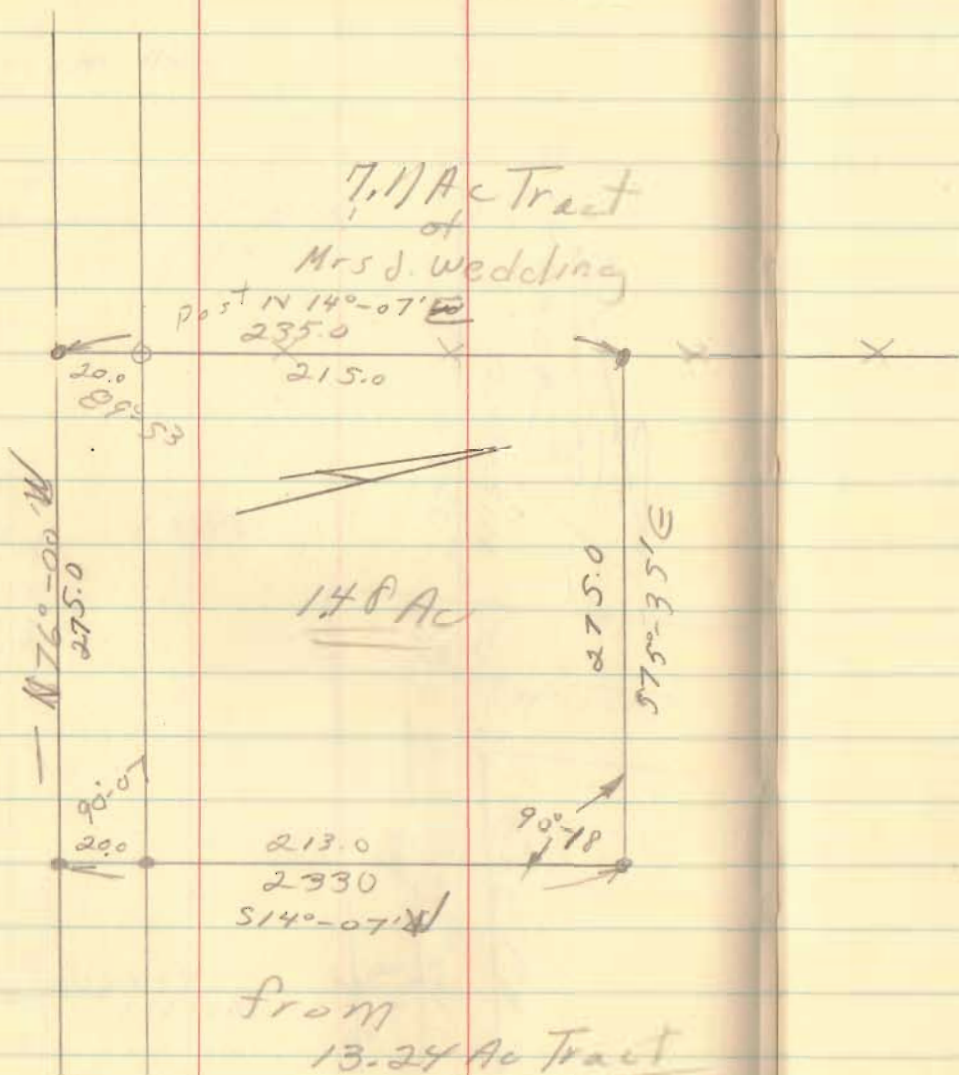 Ac Tract
of
Mrs J. Wedding
post N 14°-07'
235.0
20.0
215.0
89°
53
N76°-00'W
275.0
1.48 Ac
275.0
S75°-35'E
90°-07
20.0
213.0
2330
S14°-07'W
90°-18
from
13.24 Ac Tract